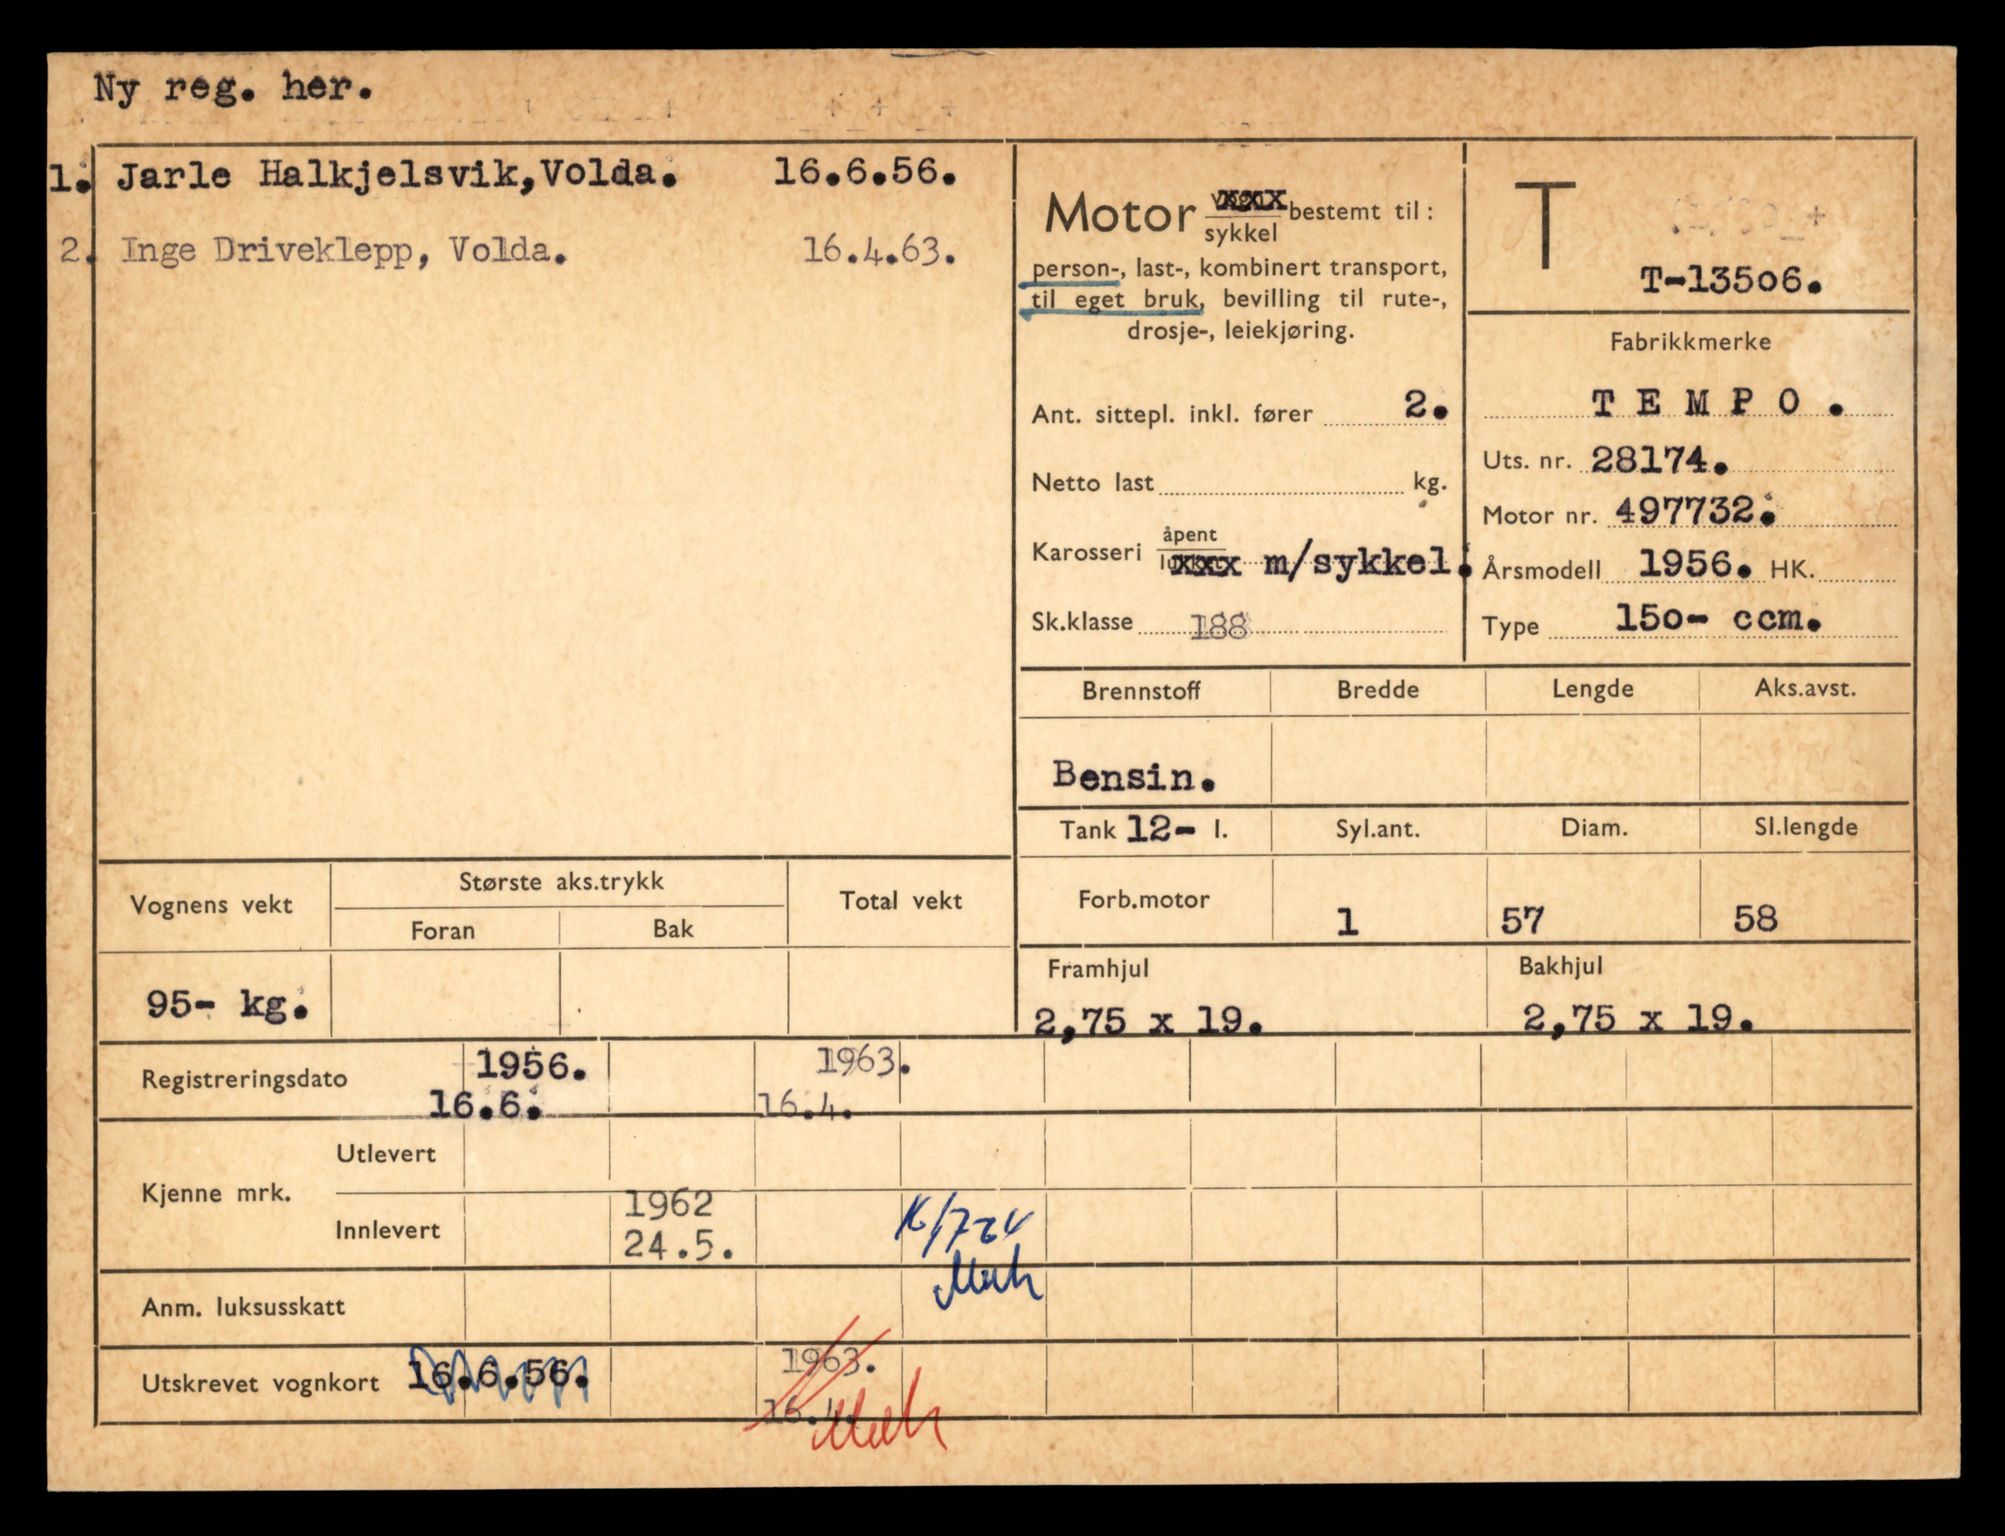 Ny reg. her.
1. Jarle Halkjelsvik,Volda. 16.6.56.
2. Inge Driveklepp, Volda. 16.4.63.
Motor vogn xxx
sykkel bestemt til:
person-, last-, kombinert transport,
til eget bruk, bevilling til rute-,
drosje-, leiekjøring.
Ant. sittepl. inkl. fører 2.
Netto last kg.
Karosseri åpent
xxx m/sykkel.
Sk.klasse 188
T
T-13506.
Fabrikkmerke
T E M P O .
Uts. nr. 28174.
Motor nr. 497732.
Årsmodell 1956. HK.
Type 150- ccm.
Brennstoff Bredde Lengde Aks.avst.
Bensin.
Tank 12- l. Syl.ant. Diam. Sl.lengde
Forb.motor 1 57 58
Framhjul Bakhjul
2,75 x 19. 2,75 x 19.
Vognens vekt Største aks.trykk Total vekt
Foran Bak
95- kg.
Registreringsdato 1956. 1963.
16.6. 16.4.
Kjenne mrk. Utlevert
Innlevert 1962
24.5.
Anm. luksusskatt
Utskrevet vognkort 16.6.56. 1963.
16.4.